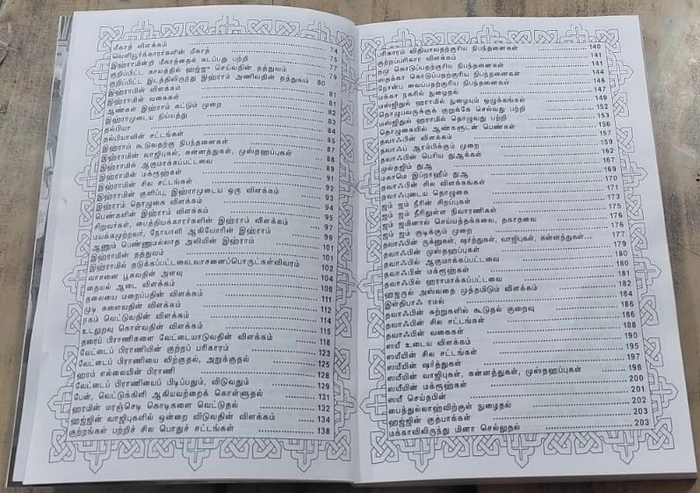 மீகாத் விளக்கம் 74
வெளியூர்க்காரர்களின் மீகாத் 75
இஹ்ராமின்றி மீகாத்தைக் கடப்பது பற்றி 77
குறிப்பிட்ட காலத்தில் ஹஜ்ஜு செய்வதின் தத்துவம் 79
குறிப்பிட்ட இடத்திலிருந்து இஹ்ராம் அணிவதின் தத்துவம் 80
இஹ்ராமின் விளக்கம் 81
இஹ்ராமின் வகைகள் 81
ஆண்கள் இஹ்ராம் கட்டும் முறை 82
இஹ்ராமுடைய நிய்யத்து 83
தல்பியா 84
தல்பியாவின் சட்டங்கள் 85
இஹ்ராம் கூடுவதற்கு நிபந்தனைகள் 87
இஹ்ராமின் வாஜிபுகள், சுன்னத்துகள், முஸ்தஹப்புகள் 88
இஹ்ராமில் ஆகுமாக்கப்பட்டவை 89
இஹ்ராமின் மக்ரூஹ்கள் 91
இஹ்ராமின் சில சட்டங்கள் 92
இஹ்ராமின் குளிப்பு, இஹ்ராமுடைய ஒரு விளக்கம் 93
இஹ்ராம் தொழுகை விளக்கம் 94
பெண்களின் இஹ்ராம் விளக்கம் 95
சிறுவர்கள், பைத்தியக்காரர்களின் இஹ்ராம் விளக்கம் 97
மயக்கமுற்றவர், நோயாளி ஆகியோரின் இஹ்ராம் 99
ஆணும் பெண்ணுமல்லாத அலியின் இஹ்ராம் 101
இஹ்ராமின் தத்துவம் 101
இஹ்ராமில் தடுக்கப்பட்டவை,வாசனைப்பொருட்கள்விவரம் 102
வாசனை பூசுவதின் அளவு 104
தையல் ஆடை விளக்கம் 108
தலையை மறைப்பதின் விளக்கம் 111
முடி களைவதின் விளக்கம் 112
நகம் வெட்டுவதின் விளக்கம் 114
உடலுறவு கொள்வதின் விளக்கம் 115
தரைப் பிராணிகளை வேட்டையாடுவதின் விளக்கம் 118
வேட்டைப் பிராணியின் குற்றப் பரிகாரம் 123
வேட்டைப் பிராணியை விற்குதல், அறுக்குதல் 125
ஹரம் எல்லையின் பிராணி 128
வேட்டைப் பிராணியைப் பிடிப்பதும், விடுவதும் 129
பேன், வெட்டுக்கிளி ஆகியவற்றைக் கொள்ளுதல் 131
ஹரமின் மரஞ்செடி கொடிகளை வெட்டுதல் 132
ஹஜ்ஜின் வாஜிபுகளில் ஒன்றை விடுவதின் விளக்கம் 134
குற்றங்கள் பற்றிச் சில பொதுச் சட்டங்கள் 138
பரிகாரம் விதியாவதற்குரிய நிபந்தனைகள் 140
குற்றப்பரிகார விளக்கம் 141
தமு கொடுப்பதற்குரிய நிபந்தனைகள் 141
ஸதக்கா கொடுப்பதற்குரிய நிபந்தனைகள் 144
நோன்பு வைப்பதற்குரிய நிபந்தனைகள் 145
மக்கா நகரில் நுழைதல் 147
மஸ்ஜிதுல் ஹராமில் நுழையும் ஒழுங்கங்கள் 149
தொழுபவருக்குக் குறுக்கே செல்வது பற்றி 152
மஸ்ஜிதுல் ஹராமில் தொழுவது பற்றி 153
தொழுகையில் ஆண்களுடன் பெண்கள் 156
தவாஃபின் விளக்கம் 157
தவாஃப் ஆரம்பிக்கும் முறை 159
தவாஃபின் பெரிய துஆக்கள் 162
முல்தஜிம் துஆ 167
மகாமே இப்றாஹீம் துஆ 169
தவாஃபின் சில விளக்கங்கள் 171
தவாஃபுடைய தொழுகை 171
ஜம் ஜம் நீரின் சிறப்பு 173
ஜம் ஜம் நீரிலுள்ள நிவாரணிகள் 175
ஜம் ஜமினால் செய்யத்தக்கவை, தகாதவை 176
ஜம் ஜம் குடிக்கும் முறை 176
தவாஃபின் ருக்னுகள், ஷர்த்துகள், வாஜிபுகள், சுன்னத்துகள் 177
தவாஃபின் முஸ்தஹப்புகள் 179
தவாஃபில் ஆகுமாக்கப்பட்டவை 180
தவாஃபின் மக்ரூஹ்கள் 180
தவாஃபில் ஹராமாக்கப்பட்டவை 181
ஹஜருல் அஸ்வதை முத்தமிடும் விளக்கம் 182
இள்திபாஃ ரமல் 184
தவாஃபின் சுற்றுகளில் கூடுதல் குறைவு 186
தவாஃபின் சில சட்டங்கள் 186
தவாஃபின் வகைகள் 188
ஸயீ உடைய விளக்கம் 190
ஸயீயின் சில சட்டங்கள் 195
ஸயீயின் ஷர்த்துகள் 197
ஸயீயின் வாஜிபுகள், சுன்னத்துகள், முஸ்தஹப்புகள் 198
ஸயீயின் மக்ரூஹ்கள் 200
ஸயீ செய்தபின் 201
பைத்துல்லாஹ்விற்குள் நுழைதல் 202
ஹஜ்ஜின் குத்பாக்கள் 203
மக்காவிலிருந்து மினா செல்லுதல் 203